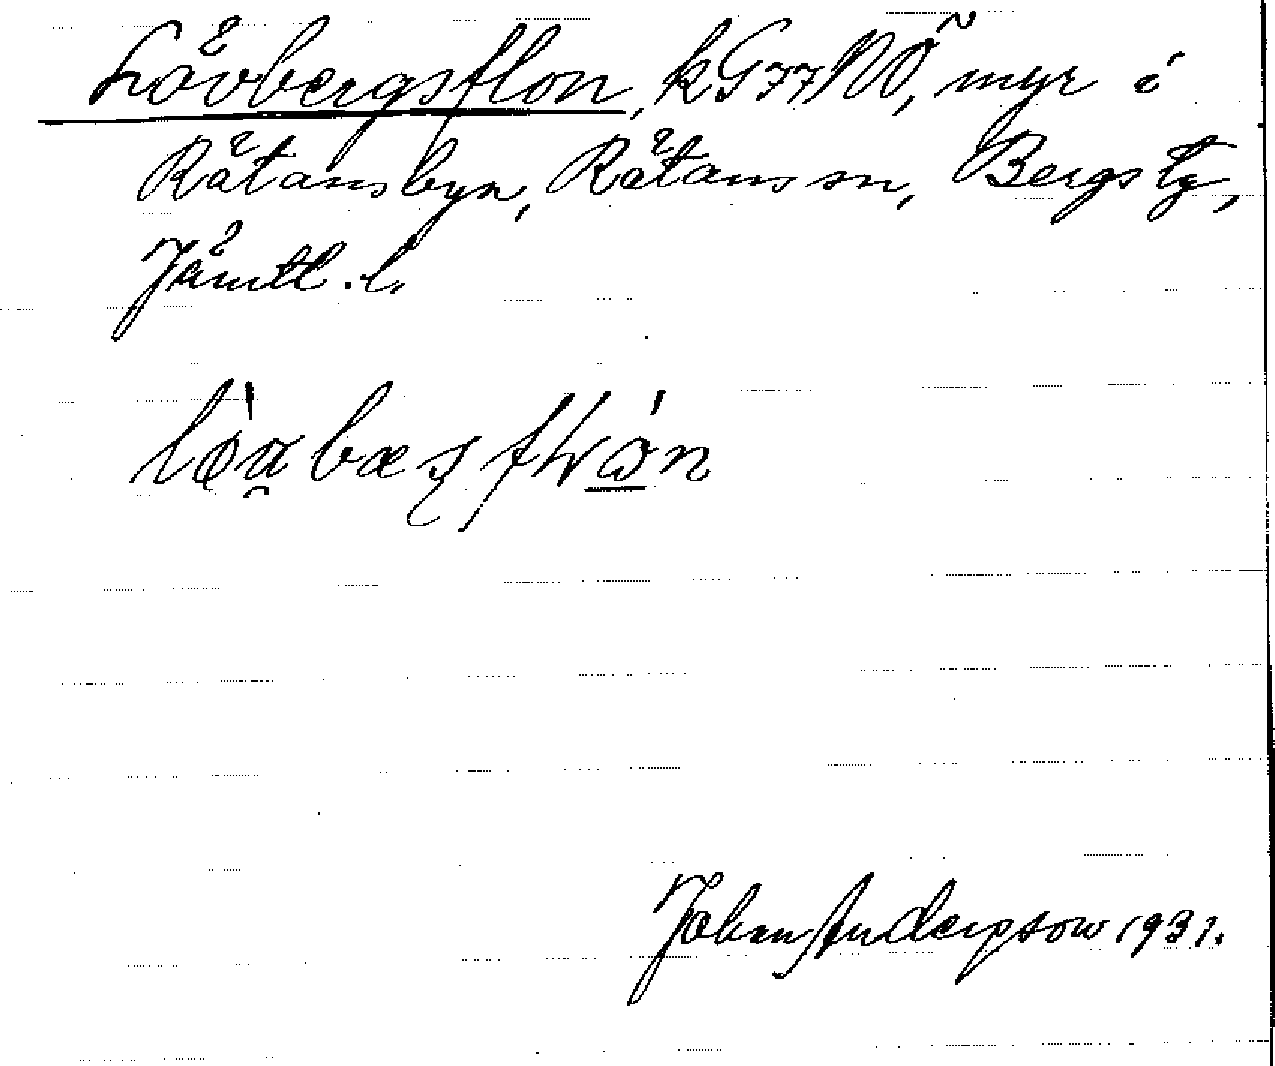 Lövbergsflon, kG77NÖ, myr i
Rätansbyn, Rätans sn, Bergs tg,
Jämtl. l.
Johan Andersson 1931.